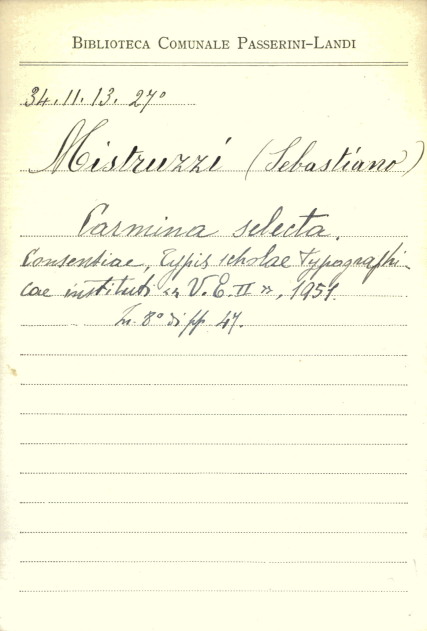 BIBLIOTECA COMUNALE PASSERINI-LANDI
34.11.13. 27°
Mistruzzi (Sebastiano)
Carmina selecta.
Consentiae, Typis scholae Typographi-
cae instituti «V. E. II», 1951.
In 8° di pp. 47.